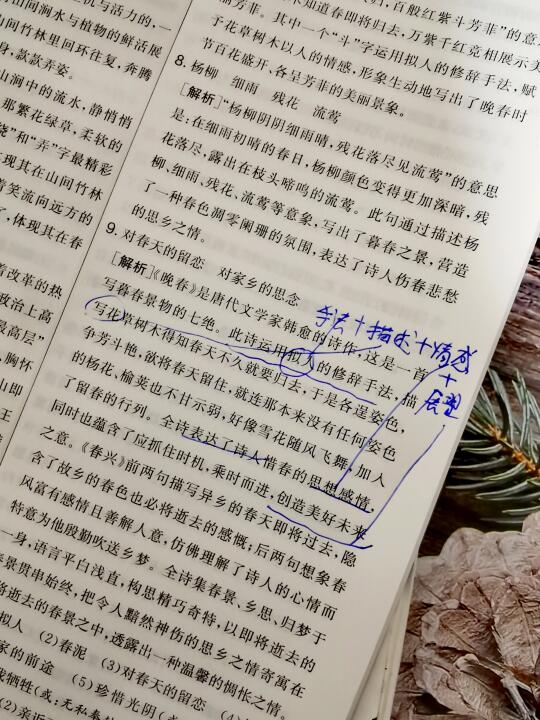 山间涧水与植物的鲜活展
山间竹林里回环往复，奔腾
身，款款弄姿。
山涧中的流水，静悄悄
那繁花绿草，柔软的
绕”和“弄”字最精彩
现其在山间竹林
着笑流向远方的
，体现其在春
着改革的热
政治上高
最高层”
胸怀
山即
王
归，百般红紫斗芳菲”的意
不知道春即将归去，万紫千红竞相展示美
斗芳菲。其中一个“斗”字运用拟人的修辞手法，赋
予花草树木以人的情感，形象生动地写出了晚春时
节百花盛开，各呈芳菲的美丽景象。
8. 杨柳　细雨　残花　流莺
[解析]“杨柳阴阴细雨晴，残花落尽见流莺”的意思
是：在细雨初晴的春日，杨柳颜色变得更加深暗，残
花落尽，露出在枝头啼鸣的流莺。此句通过描述杨
柳、细雨、残花、流莺等意象，写出了暮春之景，营造
了一种春色凋零阑珊的氛围，表达了诗人伤春悲愁
的思乡之情。
9. 对春天的留恋　对家乡的思念
[解析]《晚春》是唐代文学家韩愈的诗作，这是一首
写暮春景物的七绝。此诗运用拟人的修辞手法，描
写花草树木得知春天不久就要归去，于是各逞姿色，
争芳斗艳，欲将春天留住，就连那本来没有任何姿色
的杨花、榆荚也不甘示弱，好像雪花随风飞舞，加入
了留春的行列。全诗表达了诗人惜春的思想感情，
同时也蕴含了应抓住时机，乘时而进，创造美好未来
之意。《春兴》前两句描写异乡的春天即将过去，隐
含了故乡的春色也必将逝去的感慨；后两句想象春
风富有感情且善解人意，仿佛理解了诗人的心情而
特意为他殷勤吹送乡梦。全诗集春景、乡思、归梦于
一身，语言平白浅直，构思精巧奇特，以即将逝去的
春景贯串始终，把令人黯然神伤的思乡之情寄寓在
将逝去的春景之中，透露出一种温馨的惆怅之情。
拟人　(2)春泥　(3)对春天的留恋
家的前途　(5)珍惜光阴
手法＋描述＋情感
＋
展望